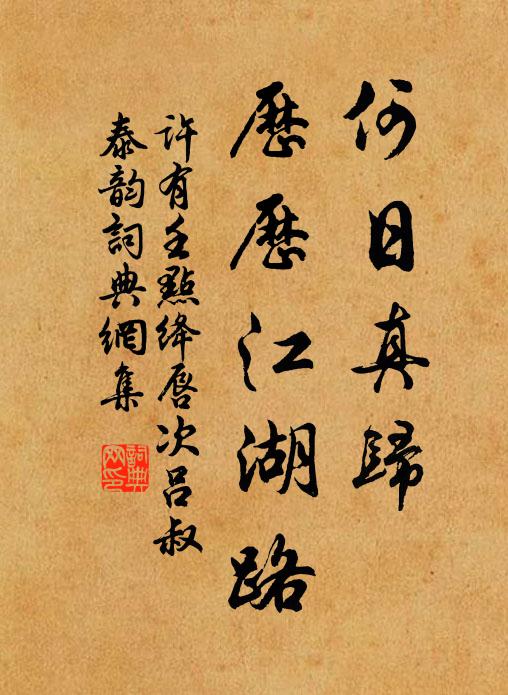 何日真歸
歷歷江湖路
許有壬點絳唇次呂叔
泰韵詞典網集
詞典網印